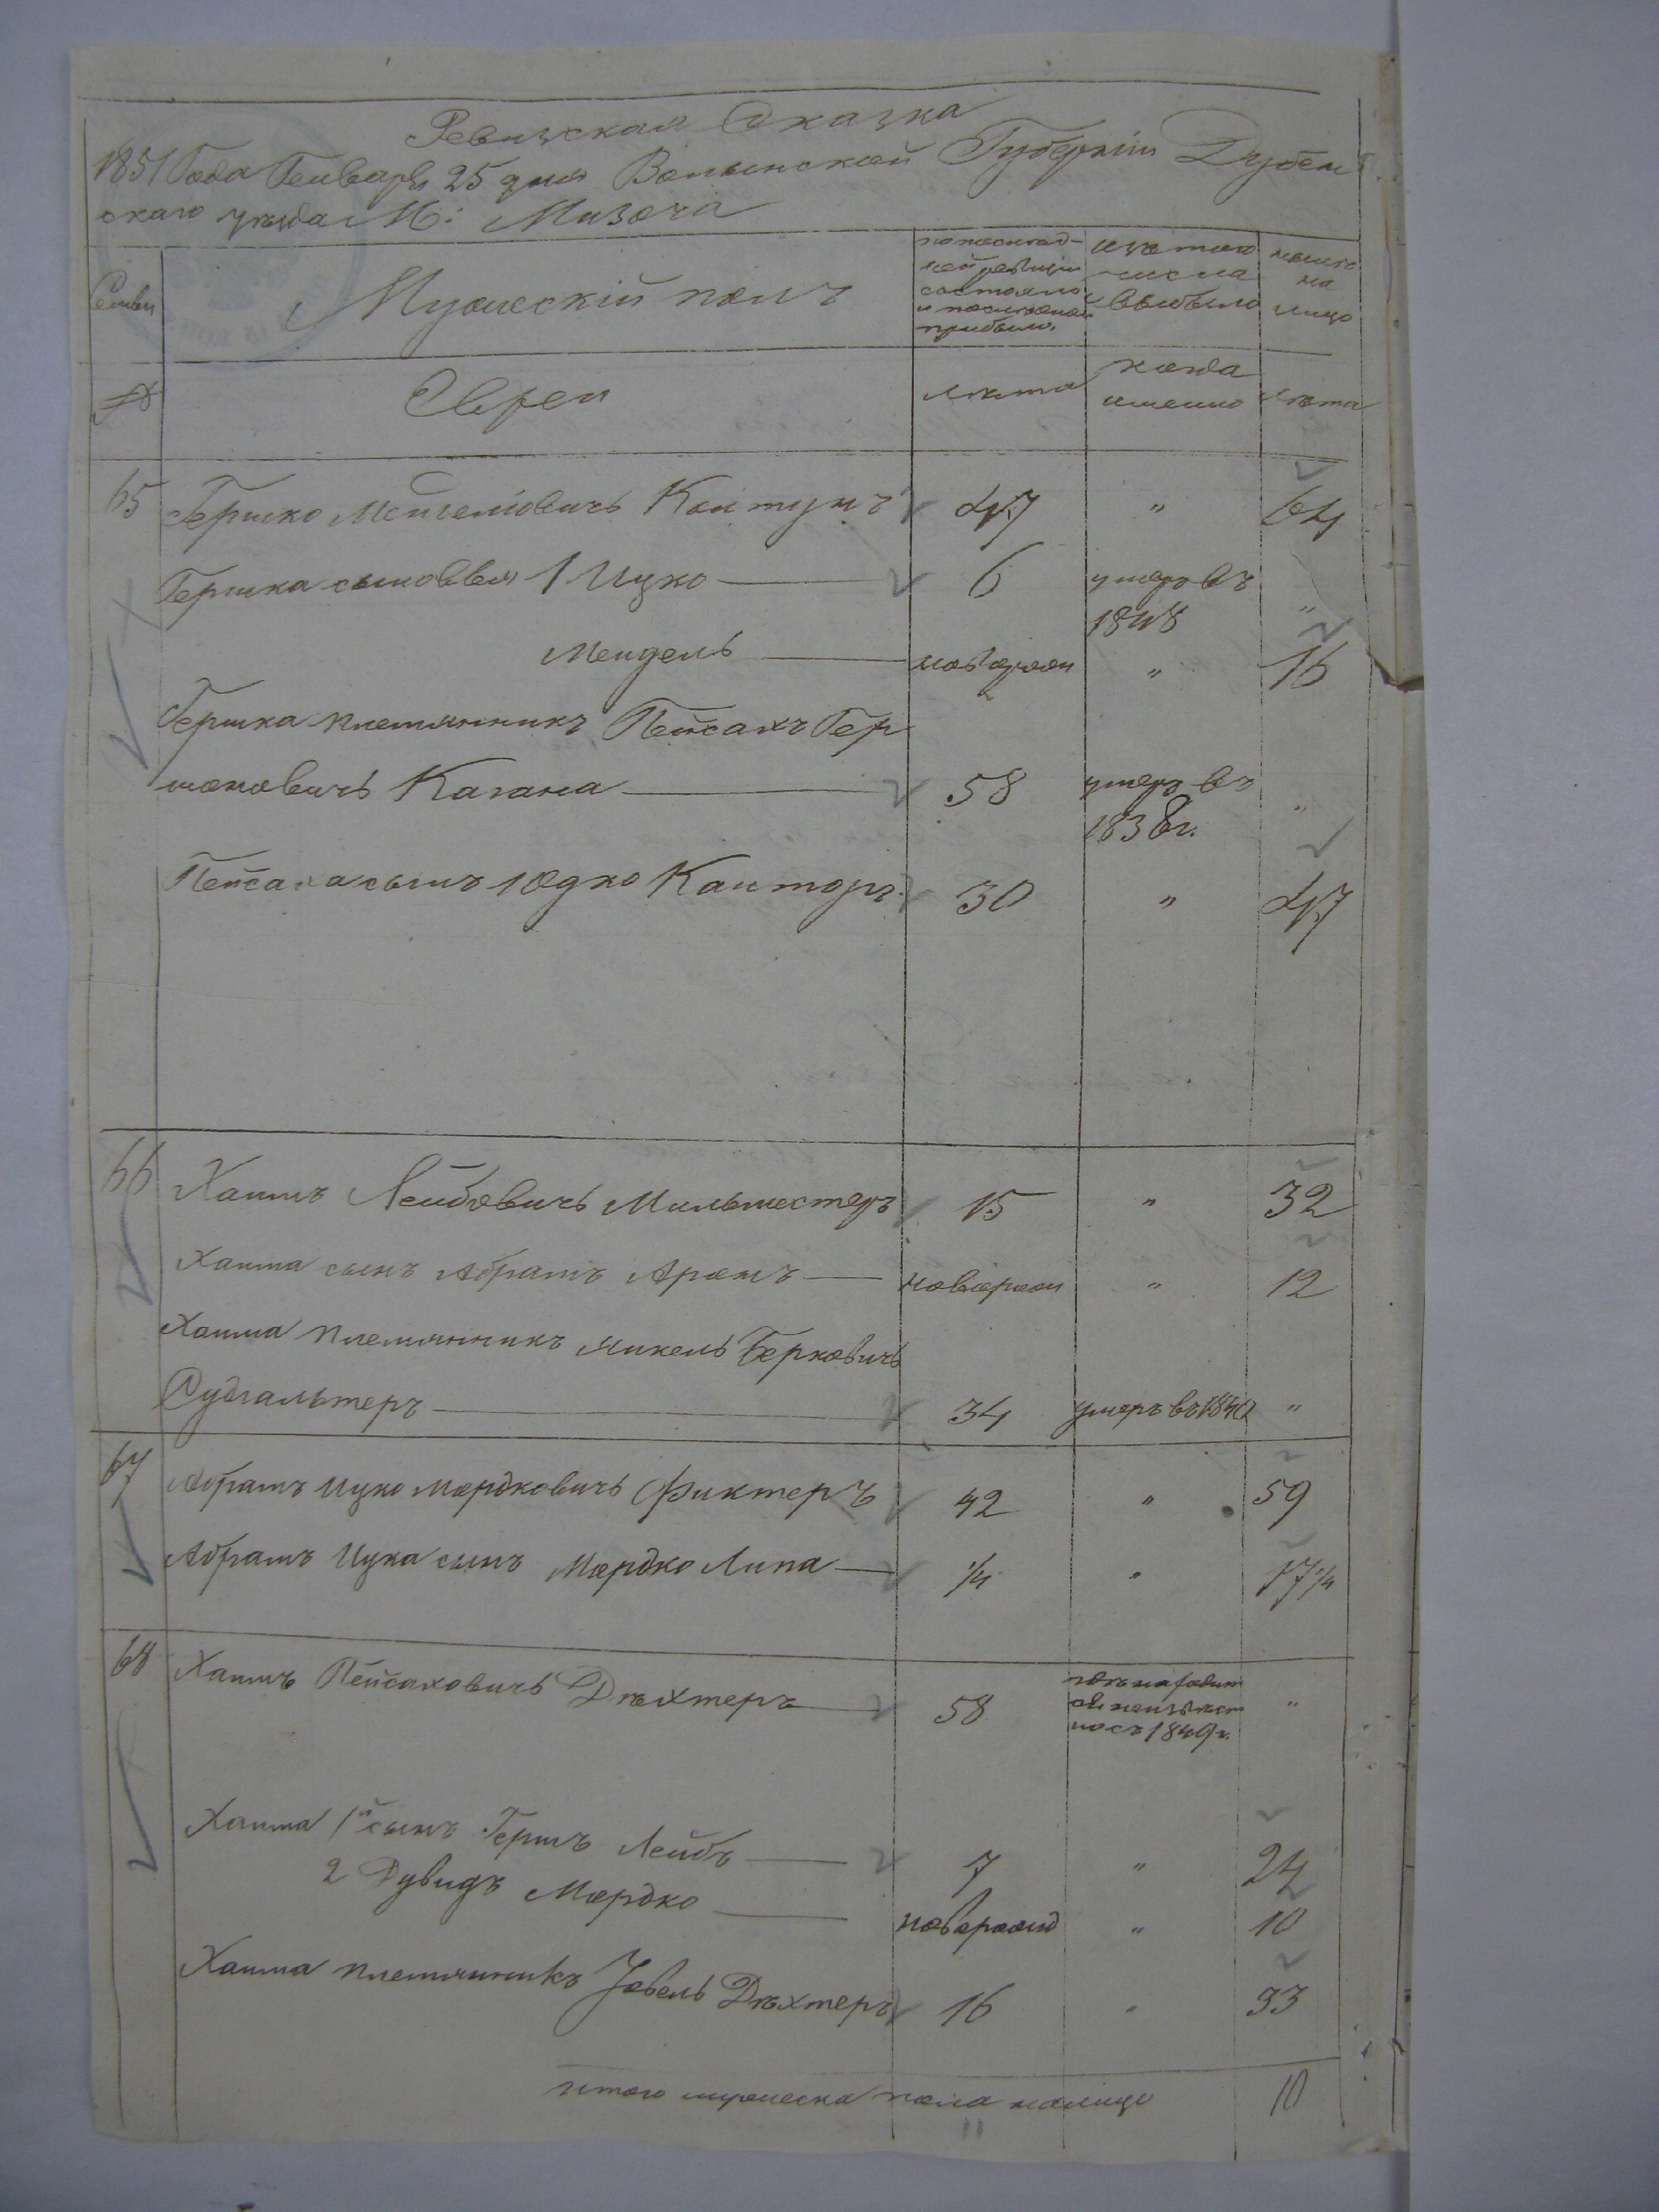 Ревизская Сказка
1851 Года Генваря 25 дня Волынской Губернiи Дубен
скаго уѣзда М: Мизоча
Семьи
Мужескiй полъ
по послѣд-
ней ревизiи
состояло
и послѣ оной
прибыло
изъ того
числа
выбыло
нынѣ
на
лицо
№
Евреи
лѣта
когда
именно
лѣта
65 Гершко Менделiовичъ Кантуръ 47 " 64
Гершка сыновья 1 Ицко 6 умеръ въ
1848 "
Мендель новорожен " 16
Гершка племянникъ Пейсахъ Гер
шоновичъ Кагана 58 умеръ въ
1838 г. "
Пейсаха сынъ Юдко Канторъ 30 " 47
66 Хаимъ Лейбовичъ Мильместеръ 15 " 32
Хаима сынъ Абрамъ Аронъ новорожен " 12
Хаима племянникъ Янкель Берковичъ
Судгальтеръ 34 умеръ въ 1840 "
67 Абрамъ Ицко Мордковичъ Фиктеръ 42 " 59
Абрамъ Ицка сынъ Мордко Липа 1/4 " 17 1/4
68 Хаимъ Пейсаховичъ Дѣхтеръ 58
неизвѣст
но съ 1849 г. "
Хаима 1й сынъ Гершъ Лейбъ 7 " 24
2 Дувидъ Мордко новорожд " 10
Хаима племянникъ Іовель Дѣхтеръ 16 " 33
итого мужеска пола налицо 10
11